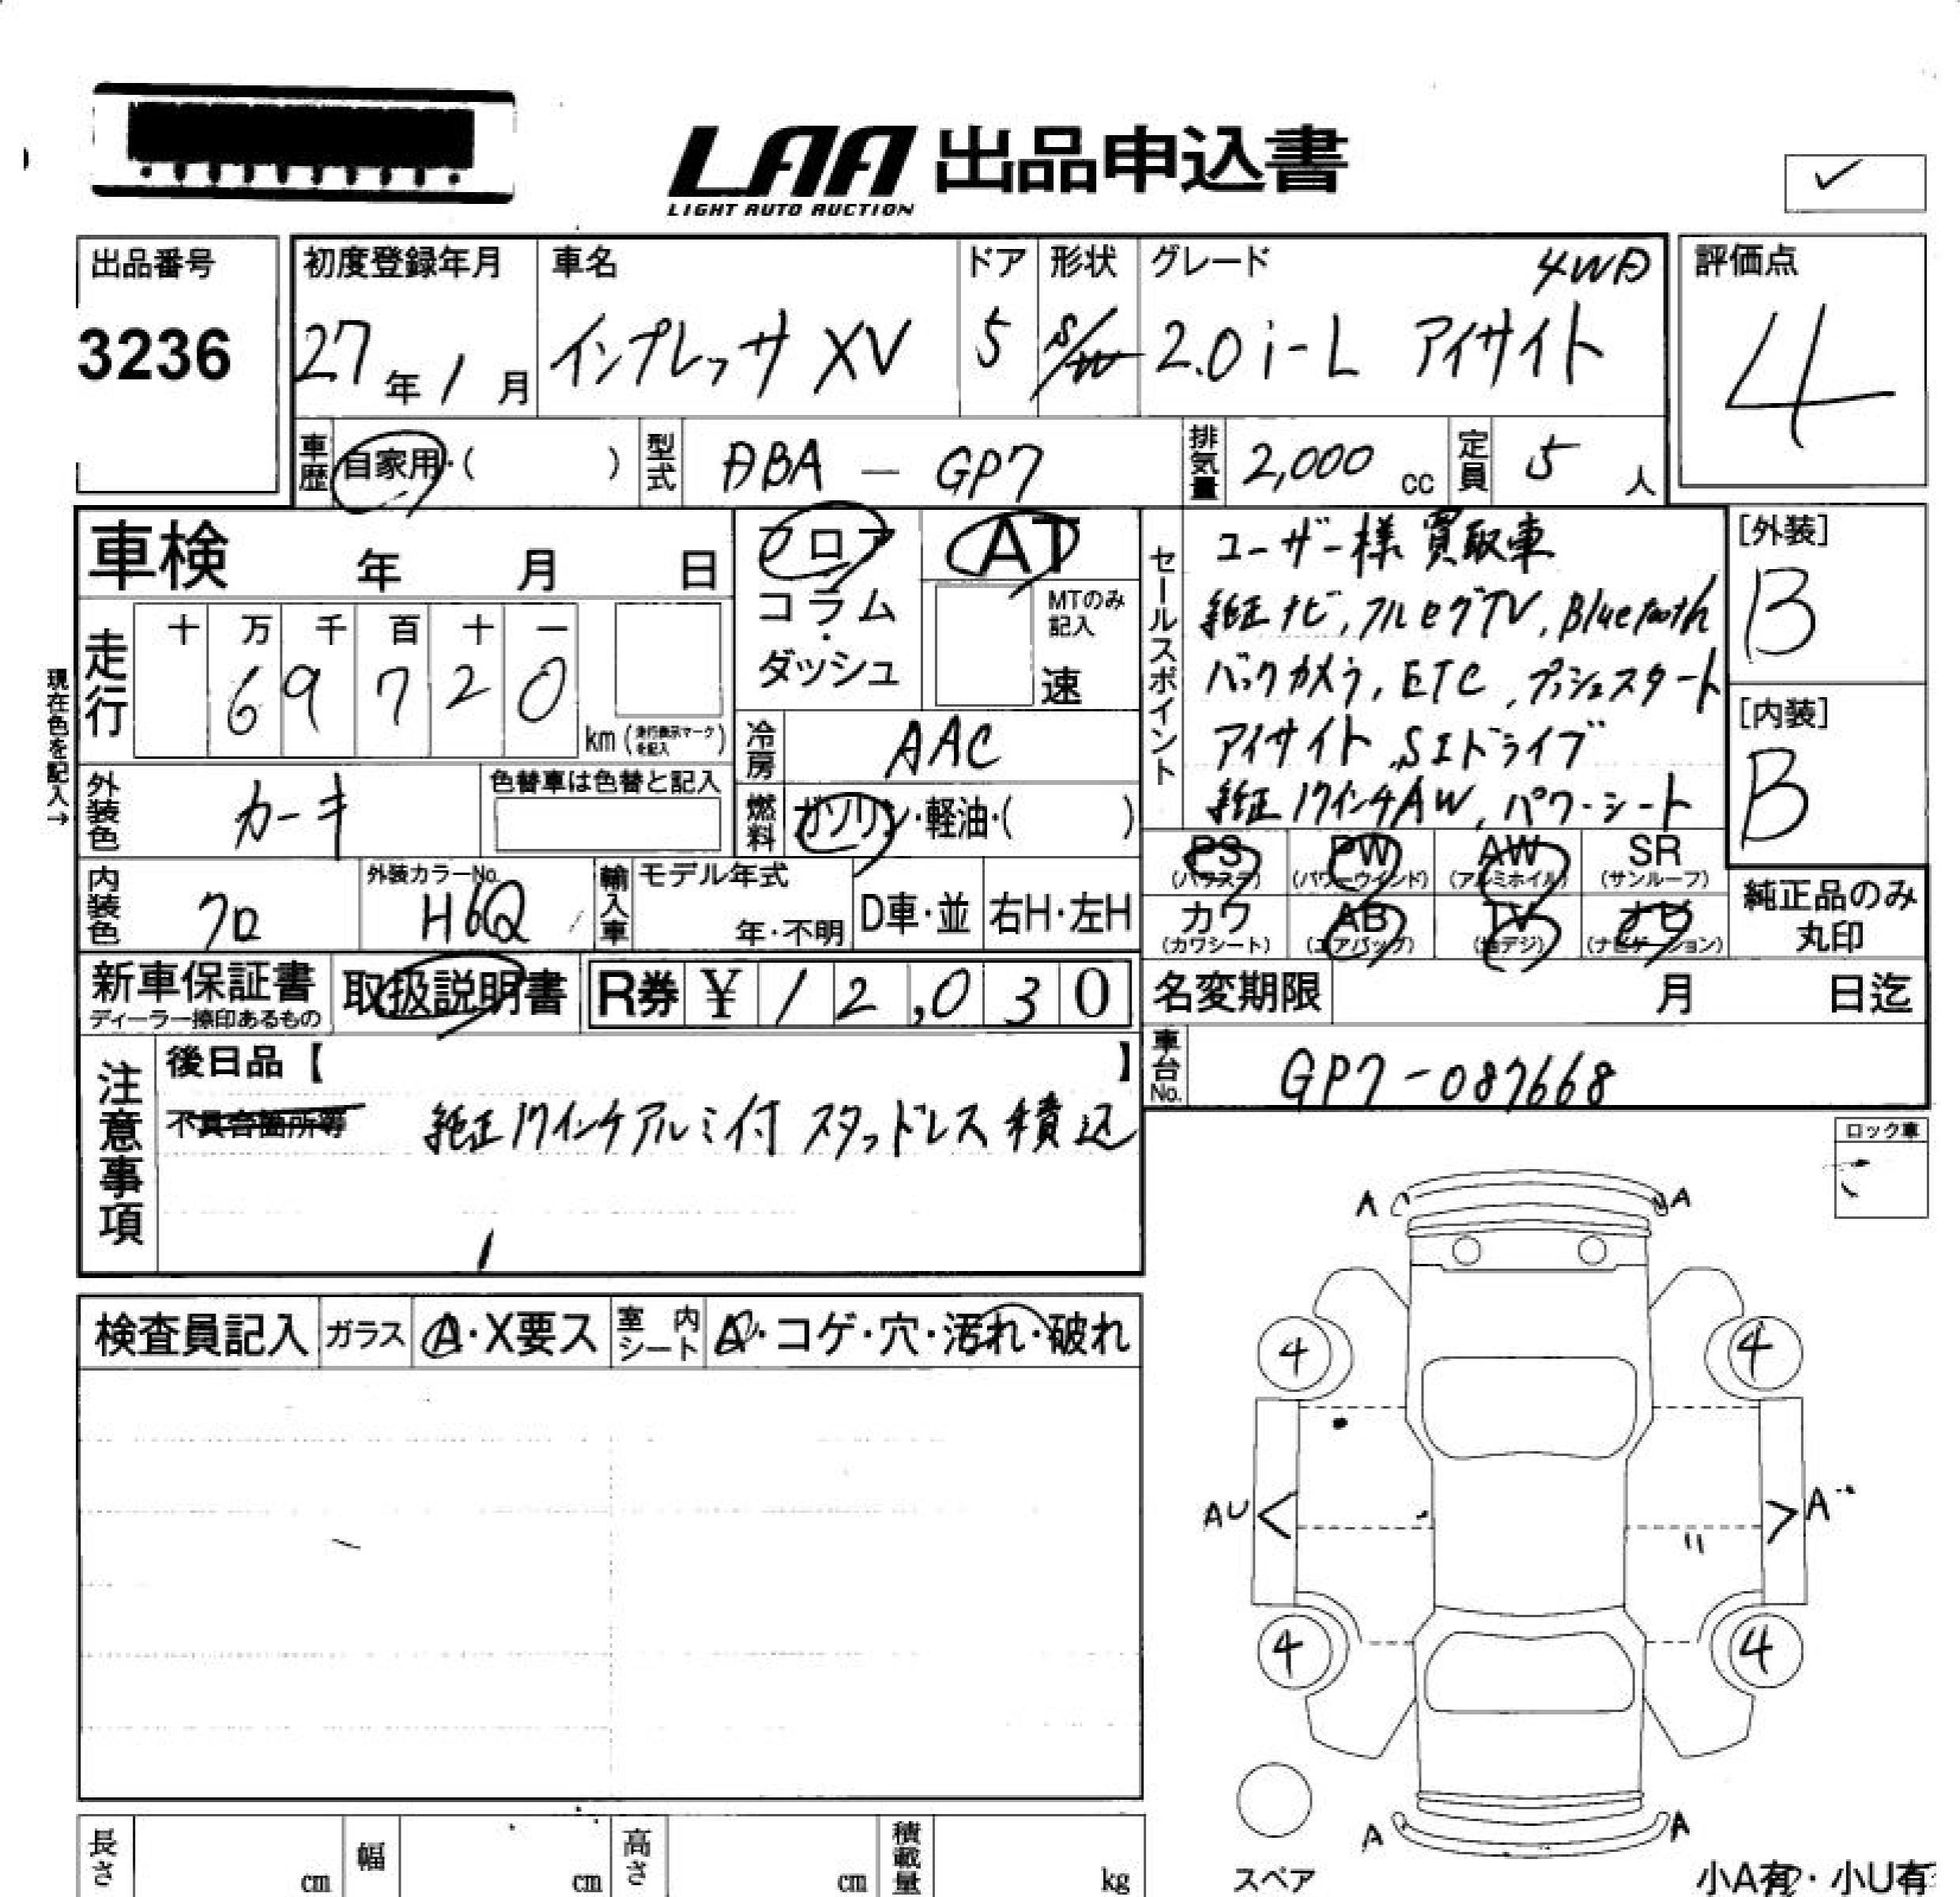 LAA 出品申込書
LIGHT AUTO AUCTION
✓
出品番号
3236
初度登録年月
27年1月
車名
インプレッサ XV
ドア
5
形状
S/W
グレード
4WD
2.0i-L アイサイト
評価点
4
車歴 自家用・( )
型式 DBA - GP7
排気量 2,000 cc
定員 5 人
車検 年 月 日
走行
十 万 千 百 十 一
6 9 7 2 0
km (走行表示マークを記入)
現在色を記入→
外装色 カーキ
色替車は色替と記入
内装色 クロ
外装カラーNo. H6Q
フロア
コラム
・
ダッシュ
AT
MTのみ記入
速
冷房 AAC
燃料 ガソリン・軽油・( )
輸入車
モデル年式
年・不明
D車・並
右H・左H
セールスポイント
ユーザー様買取車
純正ナビ, フルセグTV, Bluetooth
バックカメラ, ETC, プッシュスタート
アイサイト, SIドライブ
純正17インチAW, パワーシート
[外装]
B
[内装]
B
PS (パワステ)
PW (パワーウインド)
AW (アルミホイル)
SR (サンルーフ)
カワ (カワシート)
AB (エアバッグ)
TV (地デジ)
ナビ (ナビゲーション)
純正品のみ
丸印
新車保証書
ディーラー捺印あるもの
取扱説明書
R券 ¥ 1 2,0 3 0
名変期限 月 日迄
車台No. GP7-087668
注意事項
後日品【 】
不具合箇所等
純正17インチアルミ付 スタッドレス積込
ロック車
検査員記入
ガラス A・X要ス
室内シート A・コゲ・穴・汚れ・破れ
A A
4 4
AU A
4 4
A A
スペア
小A有・小U有
長さ cm
幅 cm
高さ cm
積載量 kg